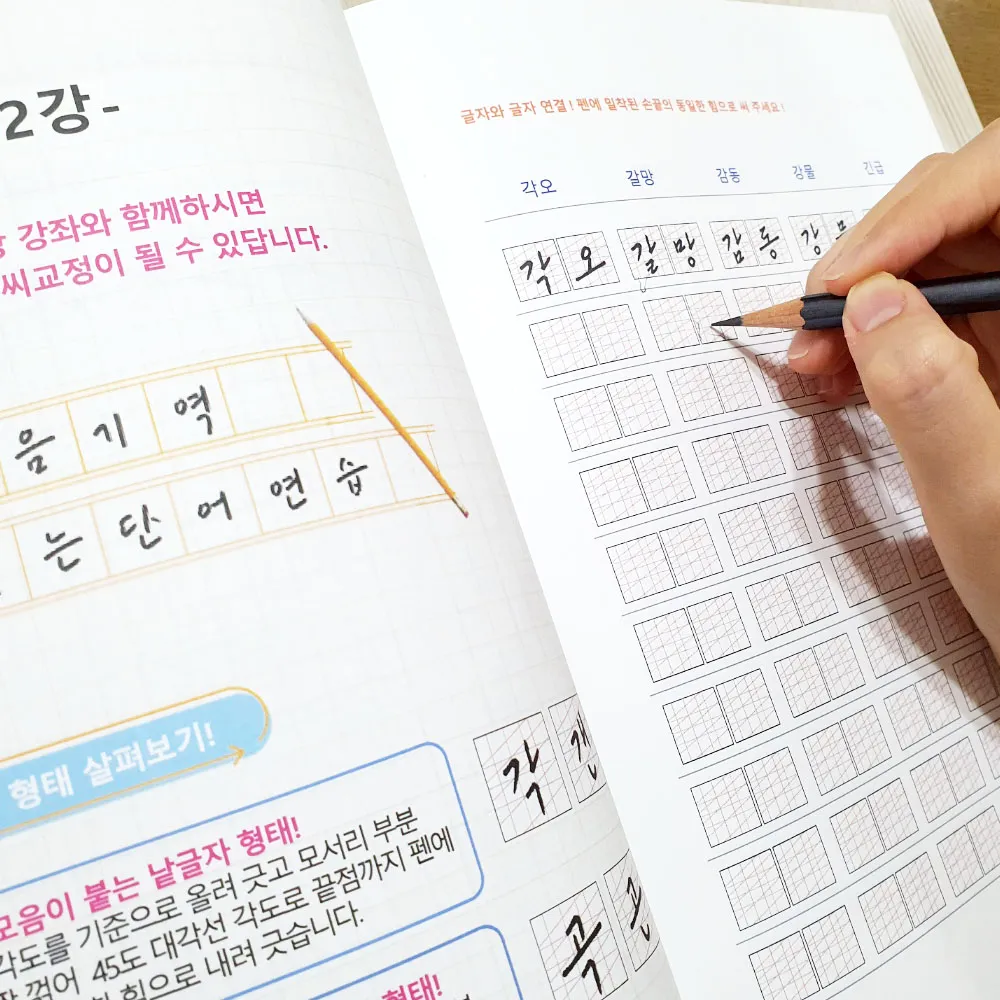 2강-
강좌와 함께하시면
씨교정이 될 수 있답니다.
음기역
는단어연습
형태 살펴보기!
모음이 붙는 낱글자 형태!
각도를 기준으로 올려 긋고 모서리 부분
꺾어 45도 대각선 각도로 끝점까지 펜에
힘으로 내려 긋습니다.
형태!
각
곡
글자와 글자 연결! 펜에 밀착된 손끝의 동일한 힘으로 써 주세요!
각오 갈망 감동 강물 긴급
각오 갈망 감동 강